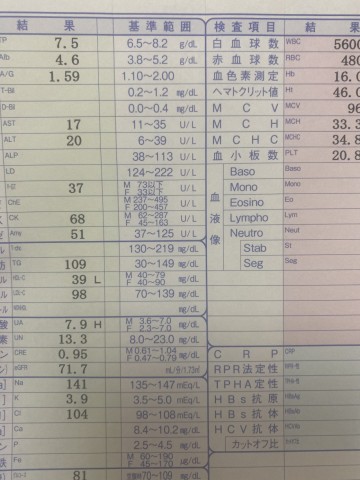 結 果 基 準 範 囲 検 査 項 目 結 果
TP 7.5 6.5～8.2 g/dL 白 血 球 数 WBC 5600
Alb 4.6 3.8～5.2 g/dL 赤 血 球 数 RBC 480
A/G 1.59 1.10～2.00 血色素測定 Hb 16.0
T-Bil 0.2～1.2 mg/dL ヘマトクリット値 Ht 46.0
D-Bil 0.0～0.4 mg/dL M C V MCV 96
AST 17 11～35 U/L M C H MCH 33.3
ALT 20 6～39 U/L M C H C MCHC 34.8
ALP 38～113 U/L 血 小 板 数 PLT 20.8
LD 124～222 U/L 血液像 Baso Baso
37 M 73以下 F 33以下 U/L Mono Mono
ChE M 237～495 F 200～457 U/L Eosino Eo
CK 68 M 62～287 F 45～163 U/L Lympho Lym
Amy 51 37～125 U/L Neutro Neut
130～219 mg/dL Stab St
TG 109 30～149 mg/dL Seg Seg
39 L M 40～79 F 40～90 mg/dL
98 70～139 mg/dL
mg/dL
酸 UA 7.9 H M 3.6～7.0 F 2.3～7.0 mg/dL
素 UN 13.3 8.0～23.0 mg/dL
ン CRE 0.95 M 0.61～1.04 F 0.47～0.79 mg/dL C R P CRP
eGFR 71.7 mL/分/1.73㎡ RPR法定性
Na 141 135～147 mEq/L TPHA定性
K 3.9 3.5～5.0 mEq/L HBs抗原 HBsAg
Cl 104 98～108 mEq/L HBs抗体
Ca 8.4～10.2 mg/dL HCV抗体
ン P 2.5～4.5 mg/dL カットオフ比
鉄 Fe M 60～190 F 45～170 μg/dL
81 70～109 mg/dL